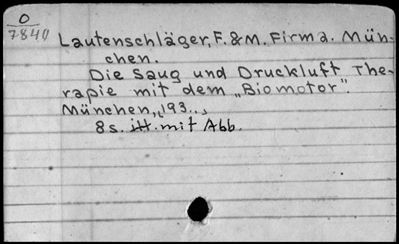 O
7840
Lautenschläger, F. & M. Firma. Mün-
chen.
Die Saug und Druckluft The-
rapie mit dem „Biomotor".
München, 193..,
8 s. ill. mit Abb.